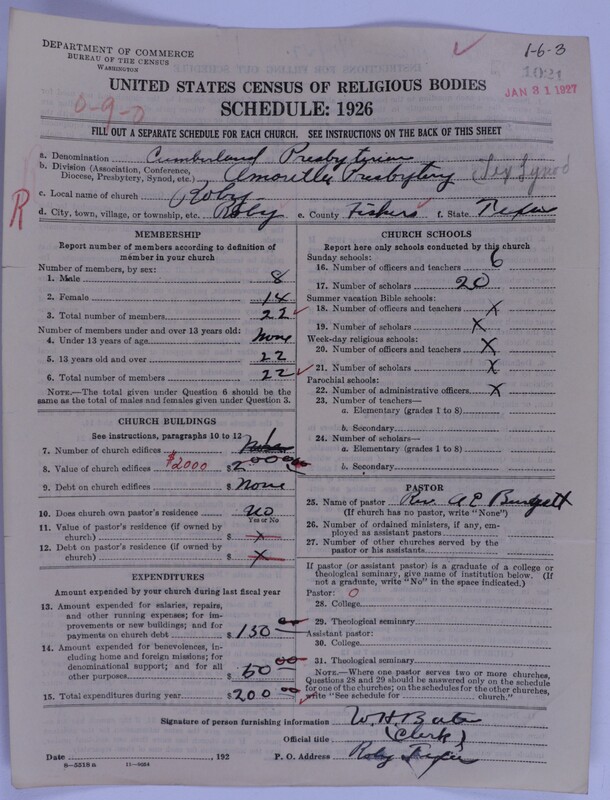 DEPARTMENT OF COMMERCE
BUREAU OF THE CENSUS
WASHINGTON
1-6-3
1021
JAN 31 1927
UNITED STATES CENSUS OF RELIGIOUS BODIES
SCHEDULE: 1926
0-9-0
FILL OUT A SEPARATE SCHEDULE FOR EACH CHURCH. SEE INSTRUCTIONS ON THE BACK OF THIS SHEET
a. Denomination Cumberland Presbyterian
b. Division (Association, Conference, Diocese, Presbytery, Synod, etc.) Presbytery Tex Synod
c. Local name of church Roby
R
d. City, town, village, or township, etc. Roby e. County Fishers f. State Texas
MEMBERSHIP
Report number of members according to definition of member in your church
Number of members, by sex:
1. Male 8
2. Female 14
3. Total number of members 22
Number of members under and over 13 years old:
4. Under 13 years of age none
5. 13 years old and over 22
6. Total number of members 22
NOTE.—The total given under Question 6 should be the same as the total of males and females given under Question 3.
CHURCH BUILDINGS
See instructions, paragraphs 10 to 12
7. Number of church edifices
8. Value of church edifices $2000 $2000 00
9. Debt on church edifices $ none
10. Does church own pastor's residence no
Yes or No
11. Value of pastor's residence (if owned by church) $ x
12. Debt on pastor's residence (if owned by church) $ x
EXPENDITURES
Amount expended by your church during last fiscal year
13. Amount expended for salaries, repairs, and other running expenses; for improvements or new buildings; and for payments on church debt $ 150
14. Amount expended for benevolences, including home and foreign missions; for denominational support; and for all other purposes $ 50 00
15. Total expenditures during year $ 200 00
CHURCH SCHOOLS
Report here only schools conducted by this church
Sunday schools:
16. Number of officers and teachers 6
17. Number of scholars 20
Summer vacation Bible schools:
18. Number of officers and teachers X
19. Number of scholars X
Week-day religious schools:
20. Number of officers and teachers X
21. Number of scholars X
Parochial schools:
22. Number of administrative officers X
23. Number of teachers—
a. Elementary (grades 1 to 8)
b. Secondary
24. Number of scholars—
a. Elementary (grades 1 to 8)
b. Secondary
PASTOR
25. Name of pastor Rev. A E Burgett
(If church has no pastor, write "None")
26. Number of ordained ministers, if any, employed as assistant pastors
27. Number of other churches served by the pastor or his assistants
If pastor (or assistant pastor) is a graduate of a college or theological seminary, give name of institution below. (If not a graduate, write "No" in the space indicated.)
Pastor: 0
28. College
29. Theological seminary
Assistant pastor:
30. College
31. Theological seminary
NOTE.—Where one pastor serves two or more churches, Questions 28 and 29 should be answered only on the schedule for one of the churches; on the schedules for the other churches, write "See schedule for church."
Signature of person furnishing information W. H. Bates
Official title (Clerk)
Date , 192 P. O. Address Roby Texas
8—5319a 11—9034